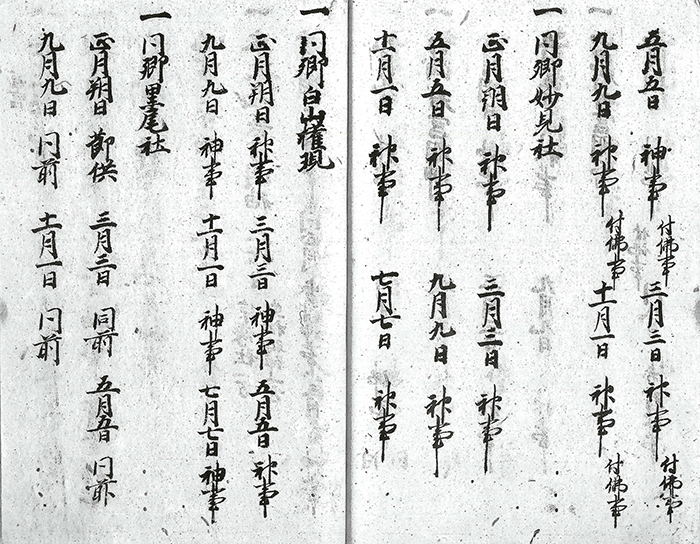 五月五日 神事付佛事 三月三日 神事付佛事
九月九日 神事付佛事 十一月一日 神事付佛事
一 同郷妙見社
正月朔日 神事 三月三日 神事
五月五日 神事 九月九日 神事
十一月一日 神事 七月七日 神事
一 同郷白山権現
正月朔日 神事 三月三日 神事 五月五日 神事
九月九日 神事 十一月一日 神事 七月七日 神事
一 同郷黒尾社
正月朔日 節供 三月三日 同前 五月五日 同前
九月九日 同前 十一月一日 同前